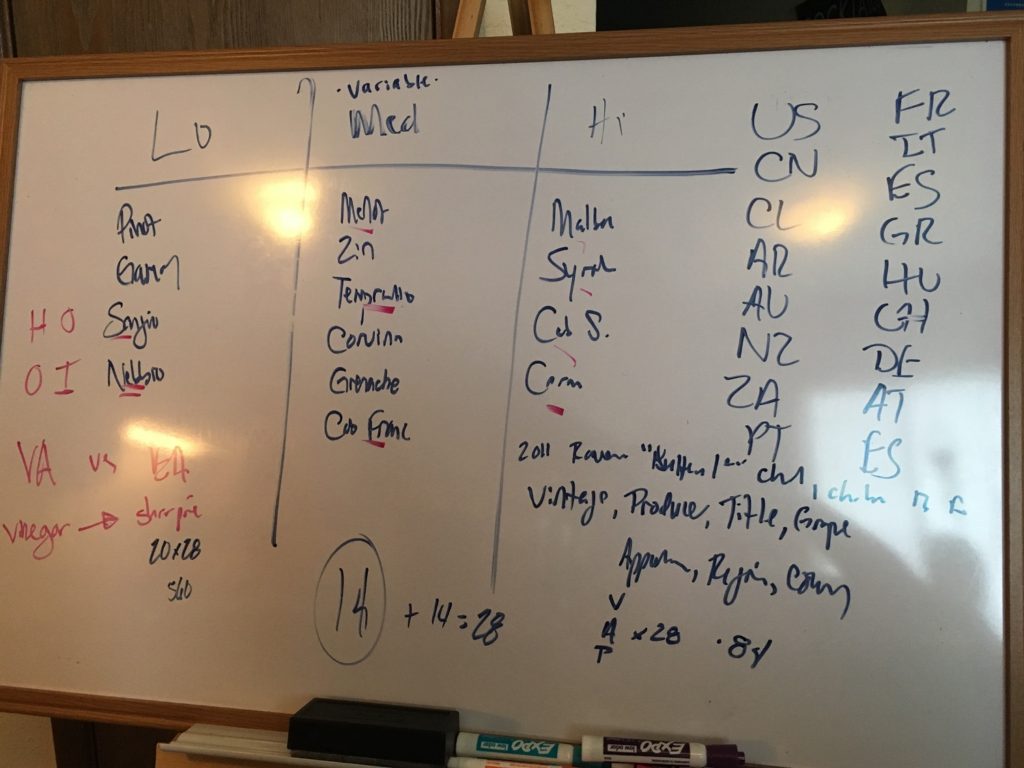 Lo
· Variable ·
Med
Hi
Pinot
Gamay
Sangio
Nebbio
H O
O I
VA vs EA
vinegar → sharpie
20x28
560
Merlot
Zin
Tempranillo
Corvina
Grenache
Cab Franc
14 + 14 = 28
Malbec
Syrah
Cab S.
Carm
US
CN
CL
AR
AU
NZ
ZA
PT
FR
IT
ES
GR
HU
GH
DE
AT
ES
2011
Vintage, Produce, Title, Grape
Appellation, Region, Country
V
A x 28 · 84
T
EXPO
low odor
EXPO
low odor